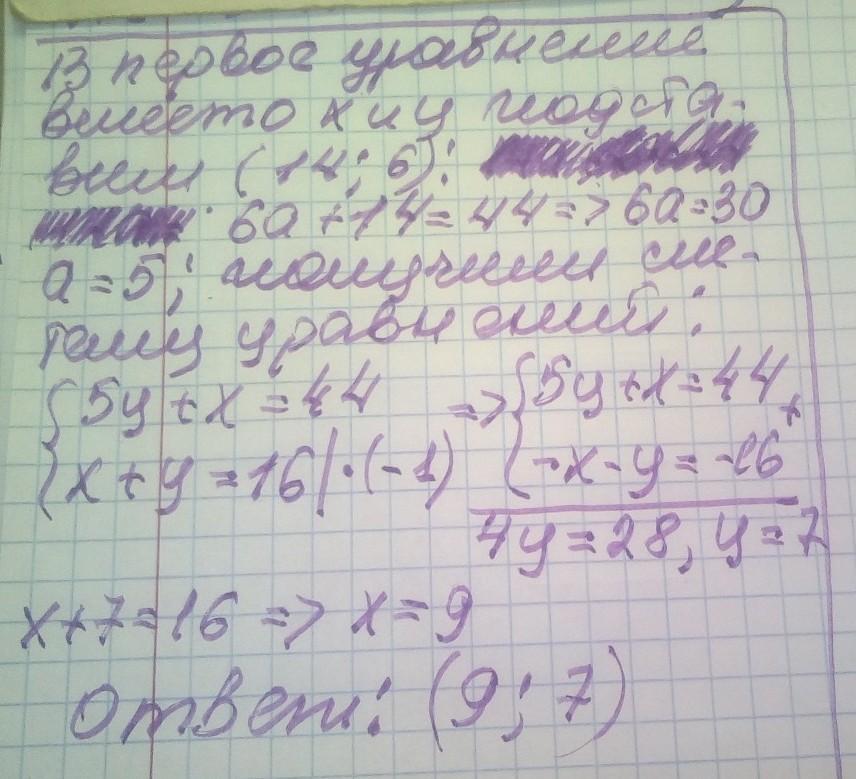 В первое уравнение
вместо x и y подста-
вим (14; 6):
6a + 14 = 44 => 6a = 30
a = 5; получим сис-
тему уравнений:
{ 5y + x = 44 => { 5y + x = 44 +
{ x + y = 16 | · (-1) { -x - y = -16
4y = 28, y = 7
x + 7 = 16 => x = 9
Ответ: (9; 7)